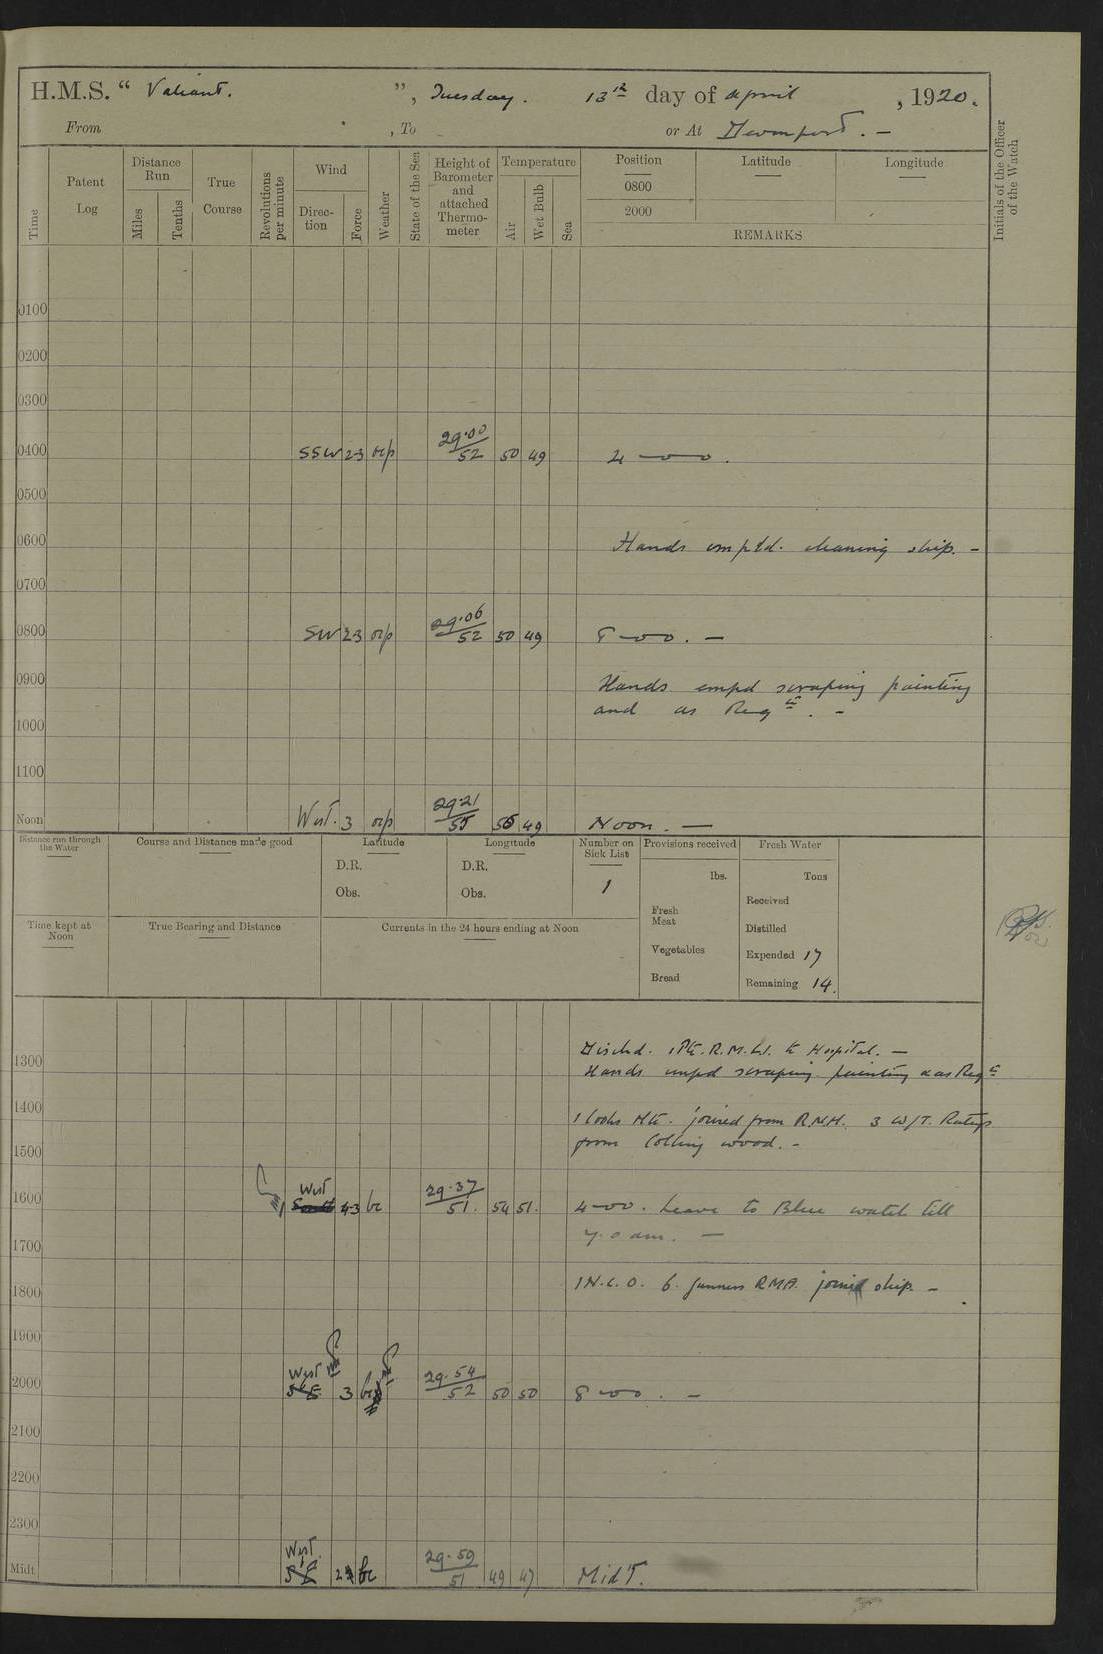 H.M.S. “ Valiant. ”, Tuesday. 13th day of April , 1920.
From , To or At Devonport. —
Time
Patent Log
Distance Run
Miles
Tenths
True Course
Revolutions per minute
Wind
Direc-tion
Force
Weather
State of the Sea
Height of Barometer and attached Thermo-meter
Temperature
Air
Wet Bulb
Sea
Position
0800
2000
Latitude
Longitude
REMARKS
Initials of the Officer of the Watch
0100
0200
0300
0400 SSW 23 orp 29.00 / 52 50 49 4—oo.
0500
0600 Hands empld. cleaning ship. —
0700
0800 SW 23 orp 29.06 / 52 50 49 8—oo. —
0900 Hands empd scraping painting
and as Reqd. —
1000
1100
Noon West. 3 orp 29.21 / 55 49 Noon. —
Distance run through the Water
Course and Distance made good
Latitude
D.R.
Obs.
Longitude
D.R.
Obs.
Number on Sick List
1
Provisions received
lbs.
Fresh Meat
Vegetables
Bread
Fresh Water
Tons
Received
Distilled
Expended 17
Remaining 14.
Time kept at Noon
True Bearing and Distance
Currents in the 24 hours ending at Noon
Dischd. 1 Pte. R.M.L.I. to Hospital. —
1300 Hands empd scraping painting & as Reqd
1400 1 Cooks Mte. joined from R.N.H. 3 W/T. Ratings
1500 from Collingwood. —
1600 West South 43 bc 29.37 / 51. 54 51. 4—oo. Leave to Blue watch till
7.0 am. —
1700
1800 1 N.C.O. 6. Gunners RMA. joined ship. —
1900
2000 West 3 29.54 / 52 50 50 8—oo. —
2100
2200
2300
Midt West. bc 29.59 / 51 49 47 MidT.